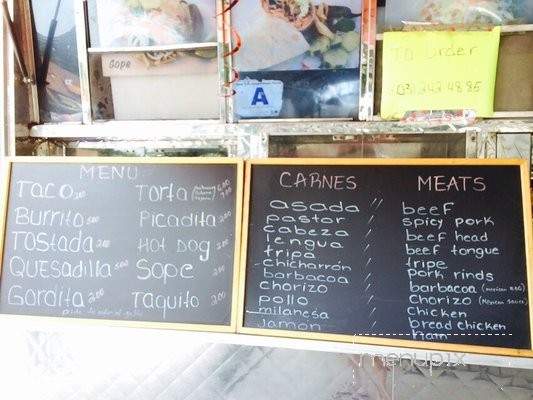 Sope
A
TO Order
(703) 242 4885
MENU
Taco 2.00
Burrito 5.00
TOStada 2.00
QUESadilla 5.00
Gordita 2.00
Torta 6.00
7.00
Picadita 2.00
HOT DOg 2.00
Sope 2.00
Taquito 2.00
CARNES
asada //
pastor
cabeza
lengua
tripa
chicharrón
barbacoa
chorizo
pollo
milanesa
Jamon
MEATS
beef
spicy pork
beef head
beef tongue
tripe
pork rinds
barbacoa (mexican BBQ)
Chorizo (Mexican sauce)
Chicken
bread chicken
Ham
menupix